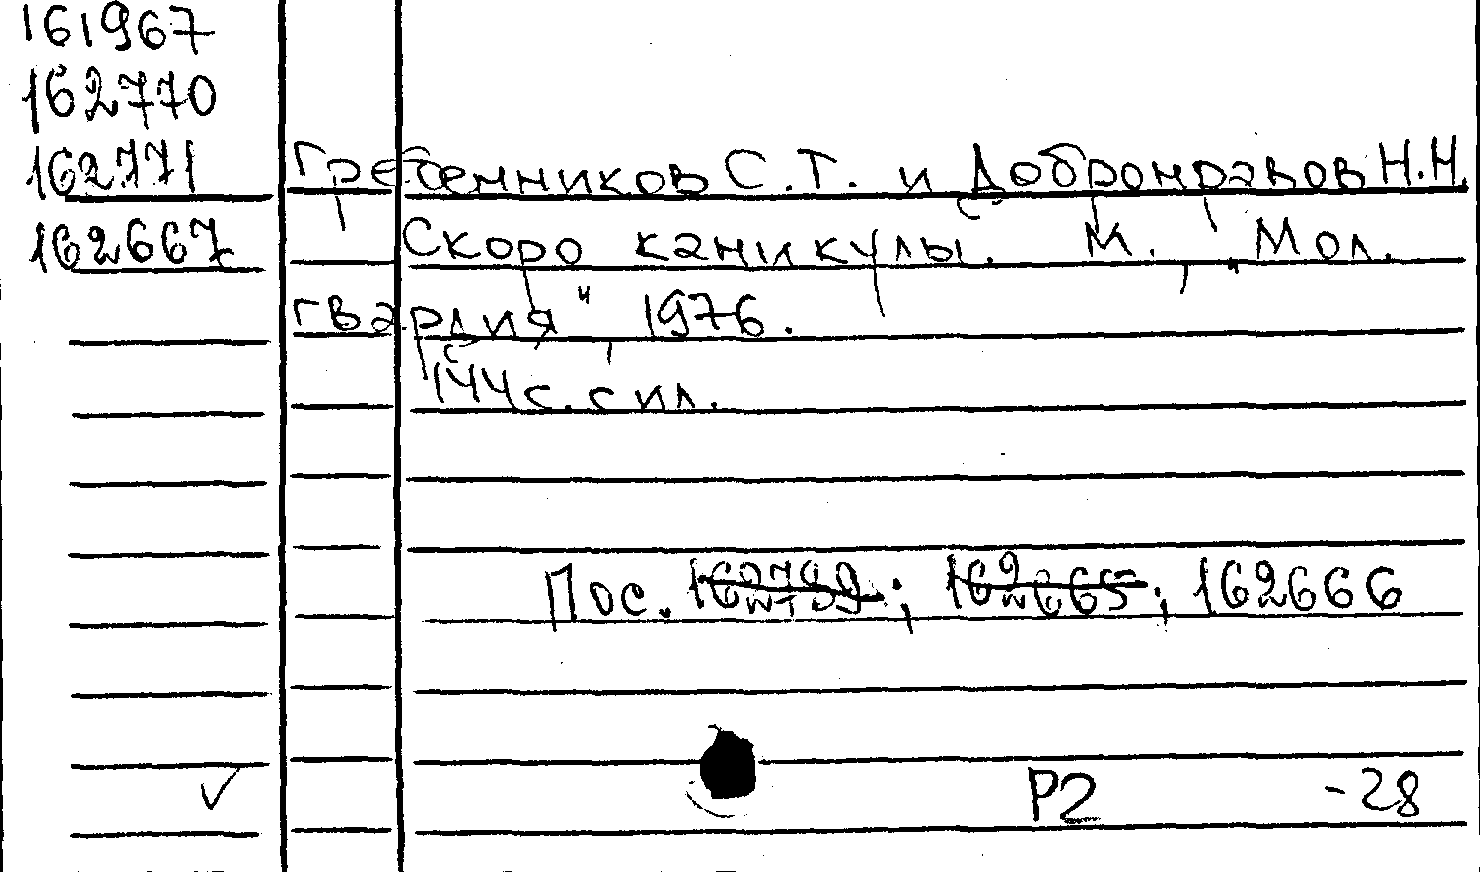 161967
162770
162771 Гребенников С.Т. и Добронравов Н.Н.
162667 Скоро каникулы. М., „Мол.
гвардия“, 1976.
144с. с ил.
Пос. 162799; 162665; 162666
Р2 -28